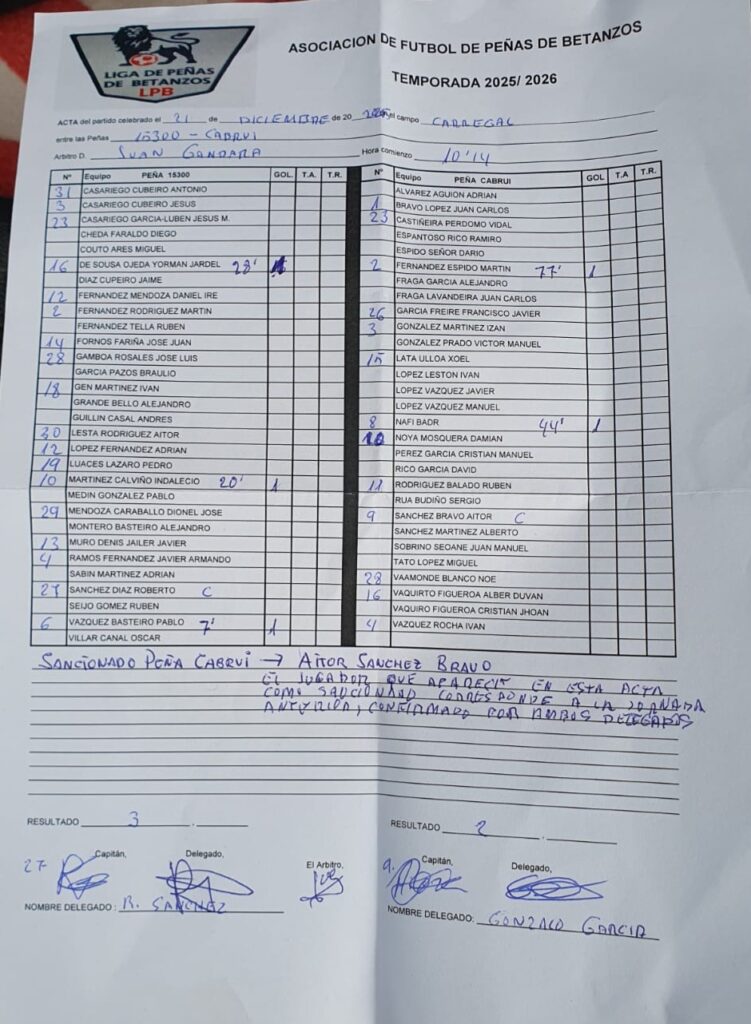 LIGA DE PEÑAS
DE BETANZOS
LPB
ASOCIACION DE FUTBOL DE PEÑAS DE BETANZOS
TEMPORADA 2025/ 2026
ACTA del partido celebrado el 21 de DICIEMBRE de 20 2025 el campo CARREGAL
entre las Peñas 15300 - CABRUI
Arbitro D. JUAN GANDARA Hora comienzo 10'14
Nº Equipo PEÑA 15300 GOL. T.A. T.R.
31 CASARIEGO CUBEIRO ANTONIO
3 CASARIEGO CUBEIRO JESUS
23 CASARIEGO GARCIA-LUBEN JESUS M.
CHEDA FARALDO DIEGO
COUTO ARES MIGUEL
16 DE SOUSA OJEDA YORMAN JARDEL 28' 1
DIAZ CUPEIRO JAIME
12 FERNANDEZ MENDOZA DANIEL IRE
2 FERNANDEZ RODRIGUEZ MARTIN
FERNANDEZ TELLA RUBEN
14 FORNOS FARIÑA JOSE JUAN
28 GAMBOA ROSALES JOSE LUIS
GARCIA PAZOS BRAULIO
18 GEN MARTINEZ IVAN
GRANDE BELLO ALEJANDRO
GUILLIN CASAL ANDRES
30 LESTA RODRIGUEZ AITOR
12 LOPEZ FERNANDEZ ADRIAN
19 LUACES LAZARO PEDRO
10 MARTINEZ CALVIÑO INDALECIO 20' 1
MEDIN GONZALEZ PABLO
29 MENDOZA CARABALLO DIONEL JOSE
MONTERO BASTEIRO ALEJANDRO
13 MURO DENIS JAILER JAVIER
4 RAMOS FERNANDEZ JAVIER ARMANDO
SABIN MARTINEZ ADRIAN
27 SANCHEZ DIAZ ROBERTO C
SEIJO GOMEZ RUBEN
6 VAZQUEZ BASTEIRO PABLO 7' 1
VILLAR CANAL OSCAR
Nº Equipo PEÑA CABRUI GOL T.A T.R.
ALVAREZ AGUION ADRIAN
1 BRAVO LOPEZ JUAN CARLOS
23 CASTIÑEIRA PERDOMO VIDAL
ESPANTOSO RICO RAMIRO
ESPIDO SEÑOR DARIO
2 FERNANDEZ ESPIDO MARTIN 77' 1
FRAGA GARCIA ALEJANDRO
FRAGA LAVANDEIRA JUAN CARLOS
26 GARCIA FREIRE FRANCISCO JAVIER
3 GONZALEZ MARTINEZ IZAN
GONZALEZ PRADO VICTOR MANUEL
15 LATA ULLOA XOEL
LOPEZ LESTON IVAN
LOPEZ VAZQUEZ JAVIER
LOPEZ VAZQUEZ MANUEL
8 NAFI BADR 44' 1
10 NOYA MOSQUERA DAMIAN
PEREZ GARCIA CRISTIAN MANUEL
RICO GARCIA DAVID
11 RODRIGUEZ BALADO RUBEN
RUA BUDIÑO SERGIO
9 SANCHEZ BRAVO AITOR C
SANCHEZ MARTINEZ ALBERTO
SOBRINO SEOANE JUAN MANUEL
TATO LOPEZ MIGUEL
28 VAAMONDE BLANCO NOE
16 VAQUIRTO FIGUEROA ALBER DUVAN
VAQUIRO FIGUEROA CRISTIAN JHOAN
4 VAZQUEZ ROCHA IVAN
SANCIONADO PEÑA CABRUI → AITOR SANCHEZ BRAVO
EL JUGADOR QUE APARECIE EN ESTA ACTA
COMO SANCIONADO CORRESPONDE A LA JORNADA
ANTERIOR, CONFIRMADO POR AMBOS DELEGADOS
RESULTADO 3 .
RESULTADO 2 .
27 Capitán, Delegado, El Arbitro,
9. Capitán, Delegado,
NOMBRE DELEGADO : R. SANCHEZ
NOMBRE DELEGADO: GONZALO GARCIA